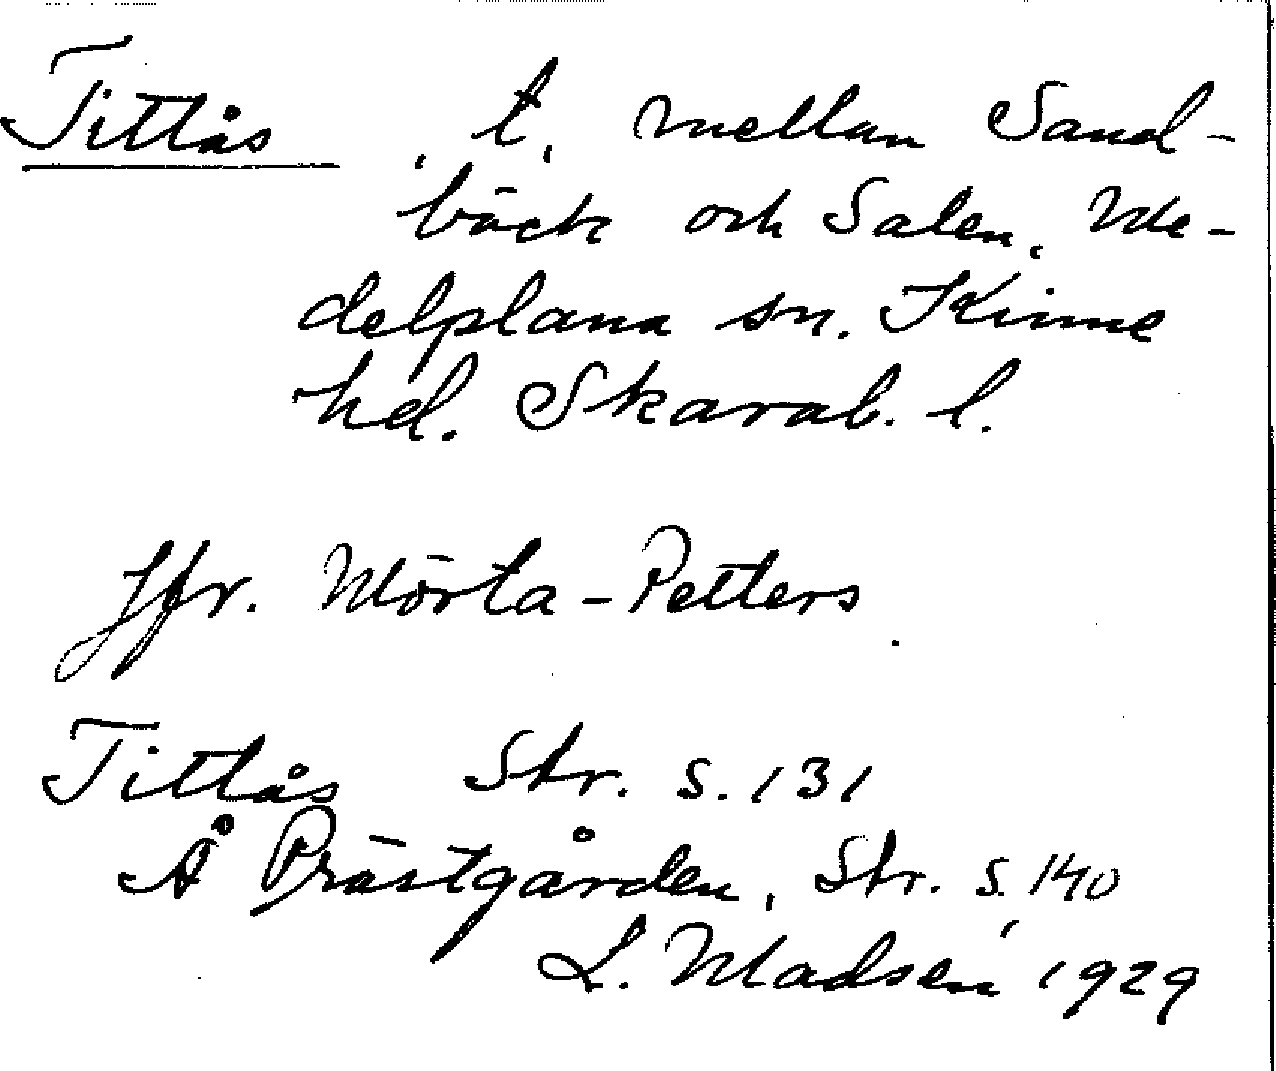 Tittås , t, mellan Sand-
bäck och Salen, Me-
delplana sn. Kinne
hd. Skarab. l.
Jfr. Mörta-Petters
Tittås Str. s. 131
Å Prästgården, Str. s. 140
L. Madsén 1929